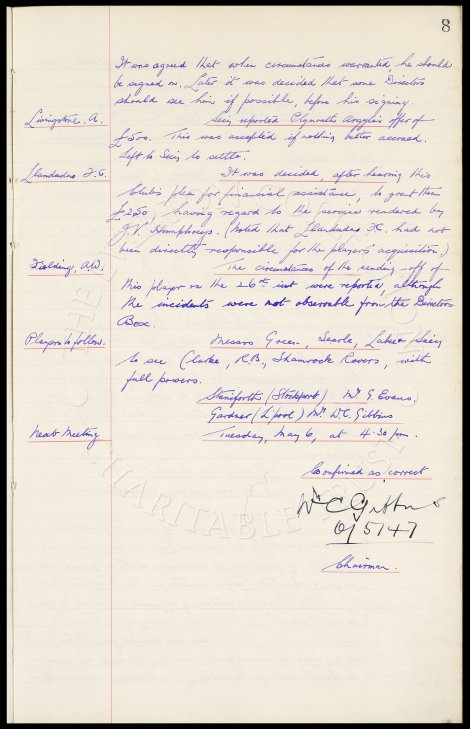 8
It was agreed that when circumstances warranted, he should
be signed on. Later it was decided that some Directors
should see him if possible, before his signing.
Livingstone. A. Secy reported Plymouth Argyle's offer of
£500. This was accepted if nothing better accrued.
Left to Secy to settle.
Llandudno F.C. It was decided, after hearing this
Club's plea for financial assistance, to grant them
£250, having regard to the service rendered by
J.V. Humphreys. (Noted that Llandudno FC. had not
been directly responsible for the players' acquisition.)
Fielding, A.W. The circumstances of the sending-off of
this player on the 26th inst were reported, although
the incidents were not observable from the Directors
Box.
Players to follow. Messrs Green, Searle, Lake & Secy
to see Clarke, R.B, Shamrock Rovers, with
full powers.
Staniforth (Stockport) Mr. G. Evans.
Gardner (L'pool) Mr. W.C. Gibbins
Next Meeting Tuesday, May 6, at 4.30 pm.
Confirmed as correct
W C Gibbins
6/5/47
Chairman.
CHARITABLE